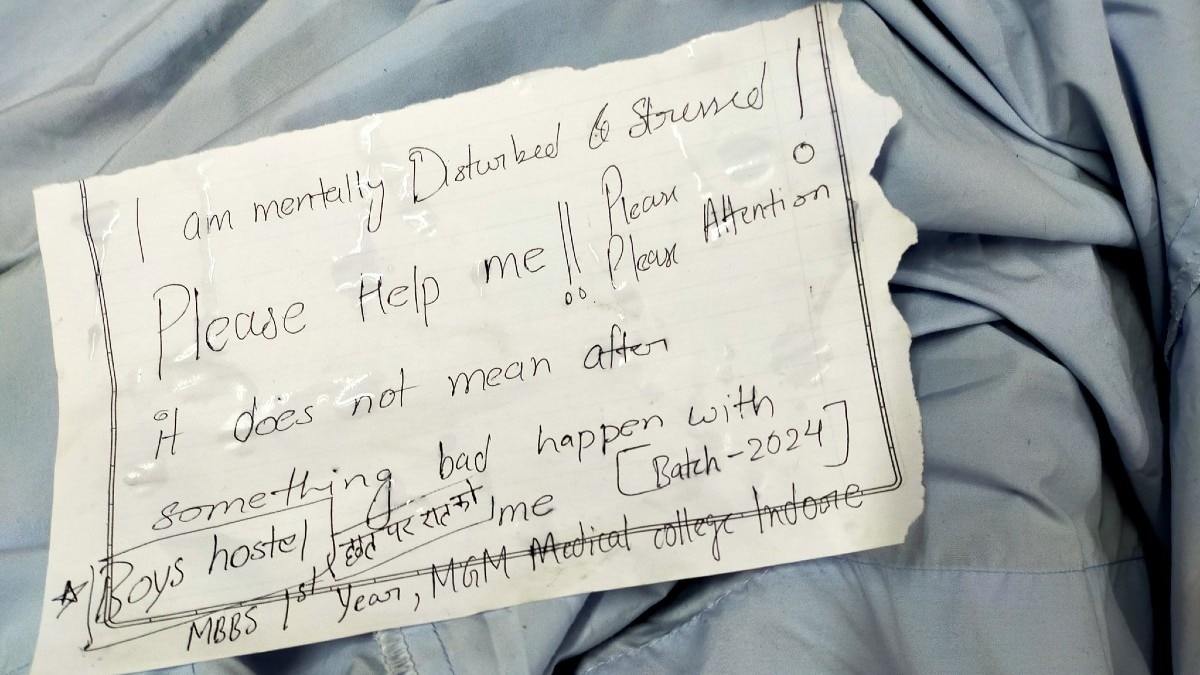 I am mentally Disturbed & Stressed !
Please Help me !! Please Please Attention
it does not mean after
something bad happen with
me [Batch-2024]
Boys hostel छत पर रात को
MBBS 1st Year, MGM Medical college Indore